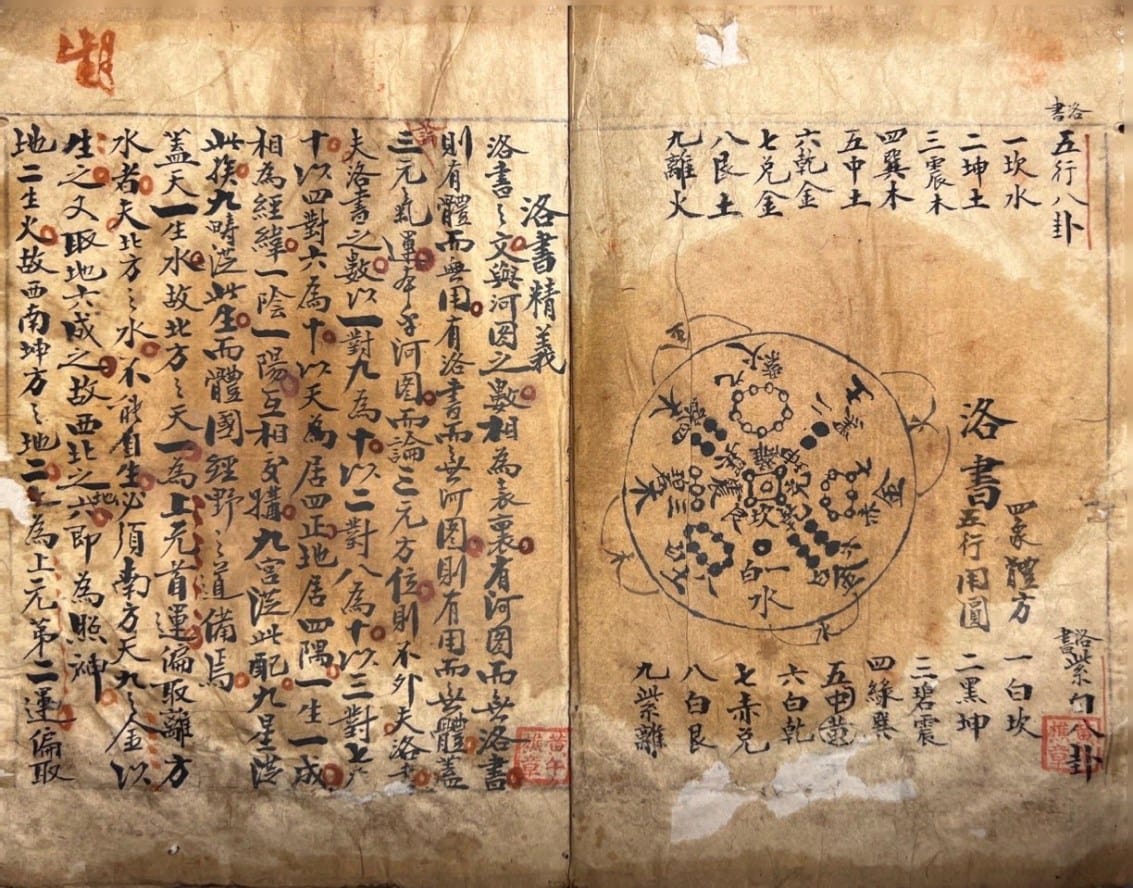 洛書
五行八卦
一坎水
二坤土
三震木
四巽木
五中土
六乾金
七兌金
八艮土
九離火
洛書
四象體方
五行用圓
九紫火
一白水
洛書
紫白八卦
一白坎
二黑坤
三碧震
四緑巽
五中黄
六白乾
七赤兌
八白艮
九紫離
洛書精義
洛書〻文與河図之數相為表裏有河図而無洛書
則有體而無用有洛書而無河図則有用而無體蓋
三元氣運本乎河図而論三元方位則不外夫洛書
夫洛書之數以一對九為十以二對八為十以三對七為
十以四對六為十以天為居四正地居四隅一生一成
相為經緯一陰一陽互相交媾九宮從此配九星從
此挨九疇從此生而體國經野〻道備焉
蓋天一生水故北方〻天一為上元首運偏取離方
水者夫北方〻水不能自生必須南方天九之金以
生之又取地六成之故西北之地六即為照神
地二生火故西南坤方〻地二為上元第二運偏取